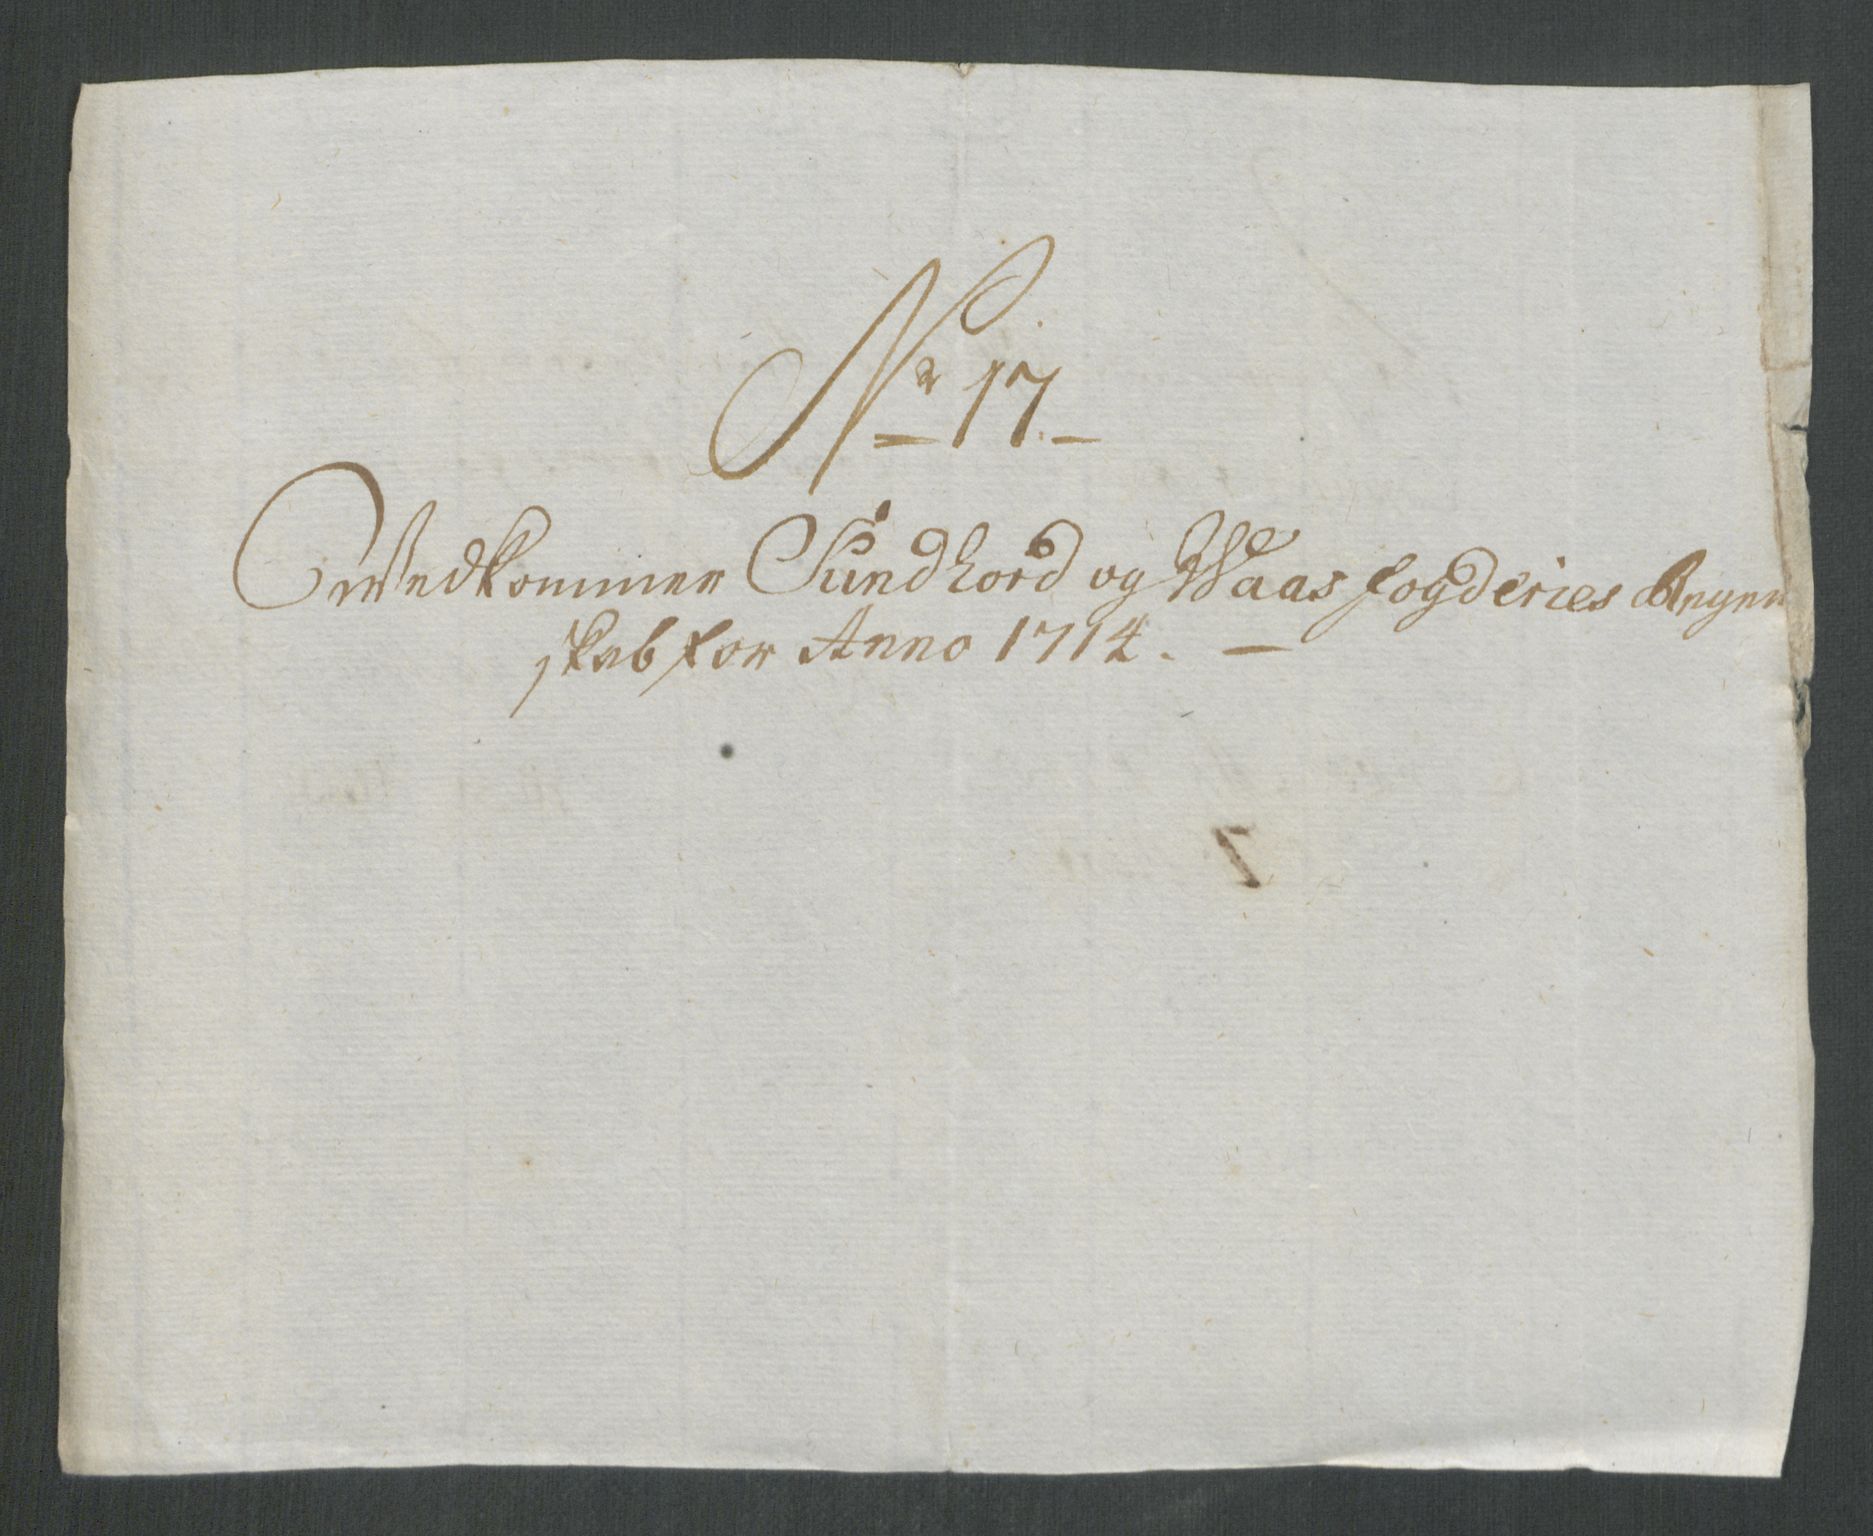 Nr 17.
Vedkommer Sundhord og Waas fogderies Regen
skab for Anno 1714.